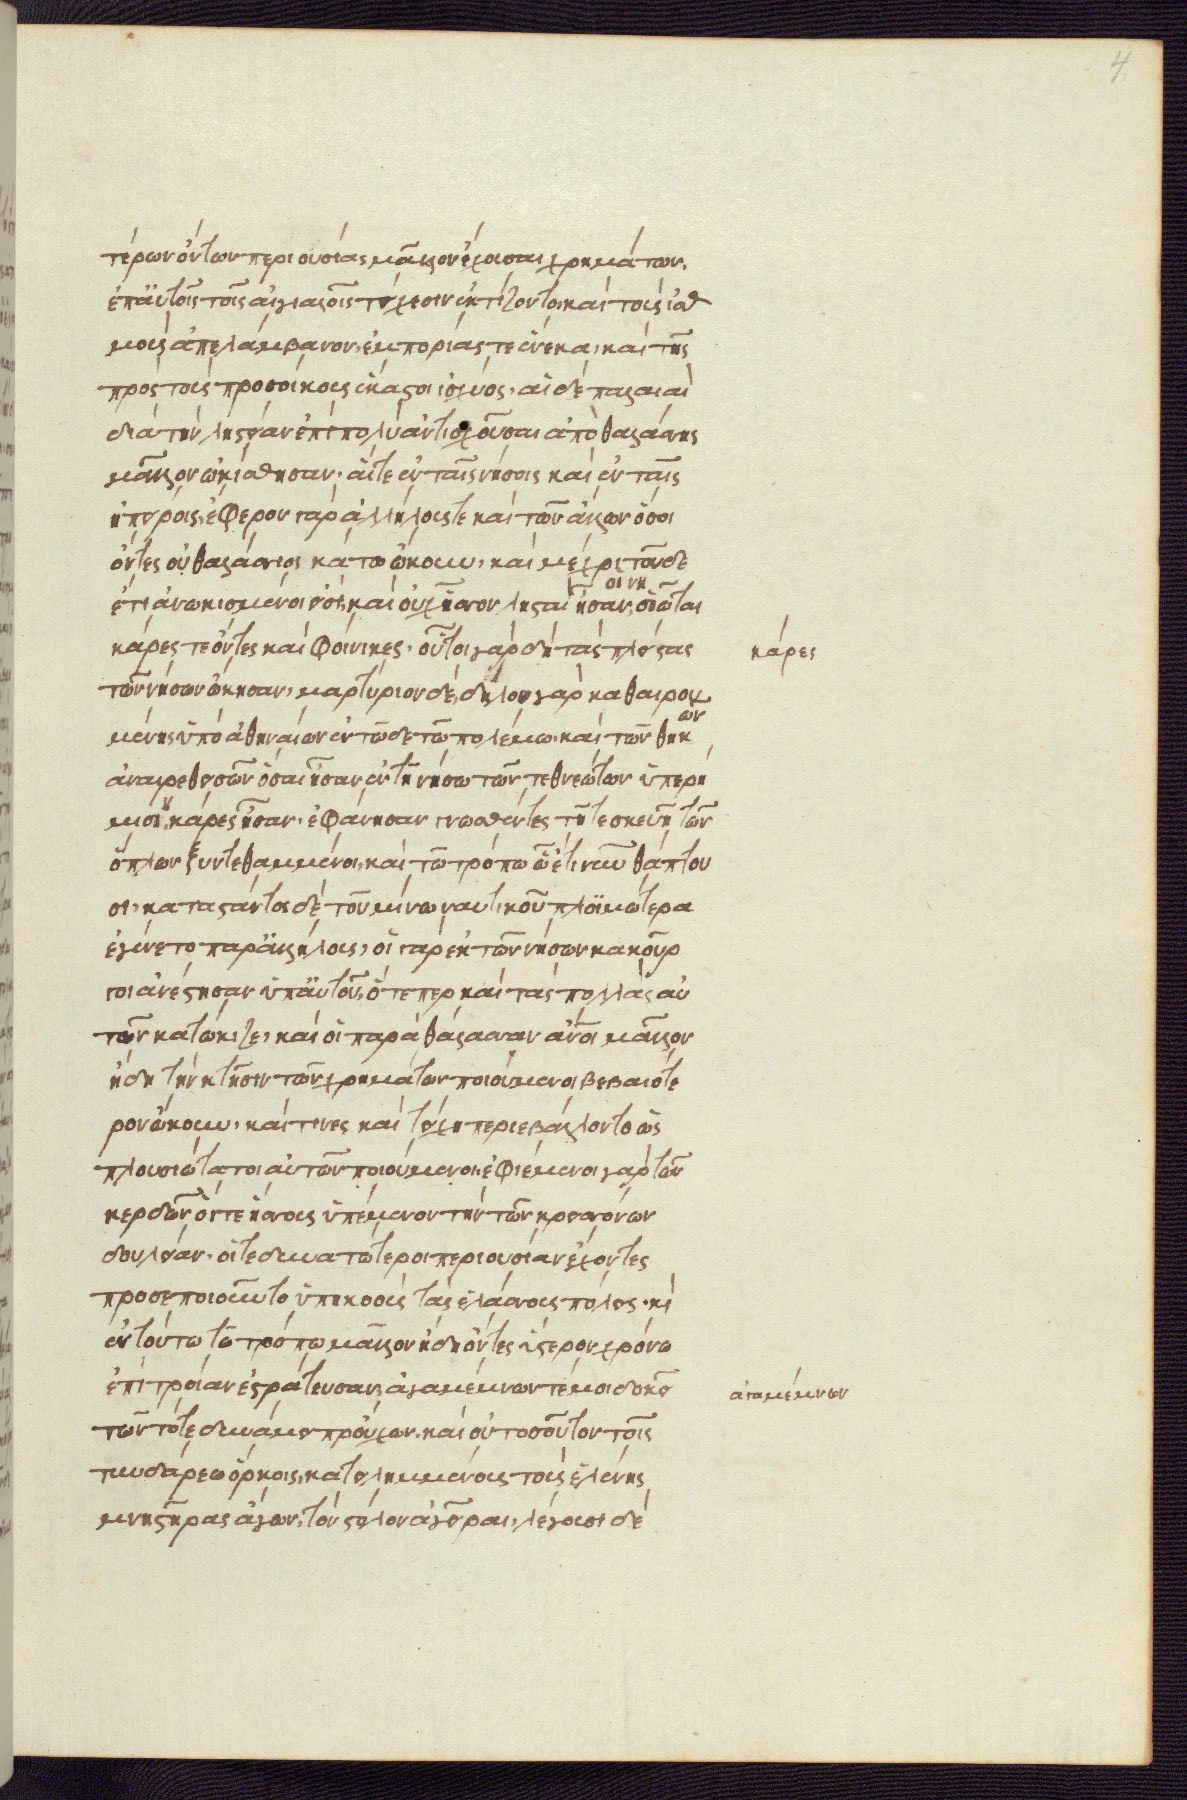 4
τέρων ὄντων περιουσίας μᾶλλον ἔχουσαι χρημάτων,
ἐπ' αὐτοῖς τοῖς αἰγιαλοῖς τείχεσιν ἐκτίζοντο, καὶ τοὺς ἰσθ
μοὺς ἀπελάμβανον, ἐμπορίας τε ἕνεκα, καὶ τῆς
πρὸς τοὺς προσοίκους ἕκαστοι ἰσχύος· αἱ δὲ παλαιαὶ
διὰ τὴν ληστείαν ἐπὶ πολὺ ἀντισχοῦσαι ἀπὸ θαλάσσης
μᾶλλον ᾠκίσθησαν· αἵτε ἐν ταῖς νήσοις καὶ ἐν ταῖς
ἠπείροις, ἔφερον γὰρ ἀλλήλους τε καὶ τῶν ἄλλων ὅσοι
ὄντες οὐ θαλάσσιοι κάτω ᾤκουν, καὶ μέχρι τοῦδε
ἔτι ἀνῳκισμένοι εἰσί, καὶ οὐχ ἧσσον λησταὶ ἦσαν, οἱ νησιῶται
κᾶρές τε ὄντες καὶ φοίνικες· οὗτοι γὰρ δὴ τὰς πλείστας
κάρες
τῶν νήσων ᾤκησαν, μαρτύριον δέ, δήλου γὰρ καθαιρου
μένης ὑπὸ ἀθηναίων ἐν τῶδε τῶ πολέμω, καὶ τῶν θηκῶν
ἀναιρεθεισῶν ὅσαι ἦσαν ἐν τῆ νήσω τῶν τεθνεώτων ὑπὲρ ἥ
μισυ κάρες ἦσαν, ἐφάνησαν γνωσθέντες τῆ τε σκευῆ τῶν
ὅπλων ξυντεθαμμένοι, καὶ τῶ τρόπω ὧ ἔτι νῦν θάπτου
σι, καταστάντος δὲ τοῦ μίνω ναυτικοῦ πλοϊμώτερα
ἐγένετο παρ' ἀλλήλους, οἱ γὰρ ἐκ τῶν νήσων κακοῦρ
γοι ἀνέστησαν ὑπ' αὐτοῦ, ὅτε περ καὶ τὰς πολλὰς αὐ
τῶν κατώκιζε, καὶ οἱ παρὰ θάλασσαν ἄνοι μᾶλλον
ἤδη τὴν κτῆσιν τῶν χρημάτων ποιούμενοι βεβαιότε
ρον ᾤκουν, καί τινες καὶ τείχη περιεβάλλοντο ὡς
πλουσιώτατοι αὐτῶν ποιούμενοι, ἐφιέμενοι γὰρ τῶν
κερδῶν, οἵ τε ἥσσους ὑπέμενον τὴν τῶν κρεισσόνων
δουλείαν, οἵ τε δυνατώτεροι περιουσίαν ἔχοντες
προσεποιοῦντο ὑπηκόους τὰς ἐλάσσους πόλεις· κὶ
ἐν τούτω τῶ τρόπω μᾶλλον ἤδη ὄντες ὕστερον χρόνω
ἐπὶ τροίαν ἐστράτευσαν, ἀγαμέμνων τέ μοι δοκεῖ
ἀγαμέμνων
τῶν τότε δυνάμει προύχων, καὶ οὐ τοσοῦτον τοῖς
τυνδάρεω ὅρκοις, κατειλημμένους τοὺς ἑλένης
μνηστῆρας ἄγων, τὸν στόλον ἀγεῖραι, λέγουσι δὲ